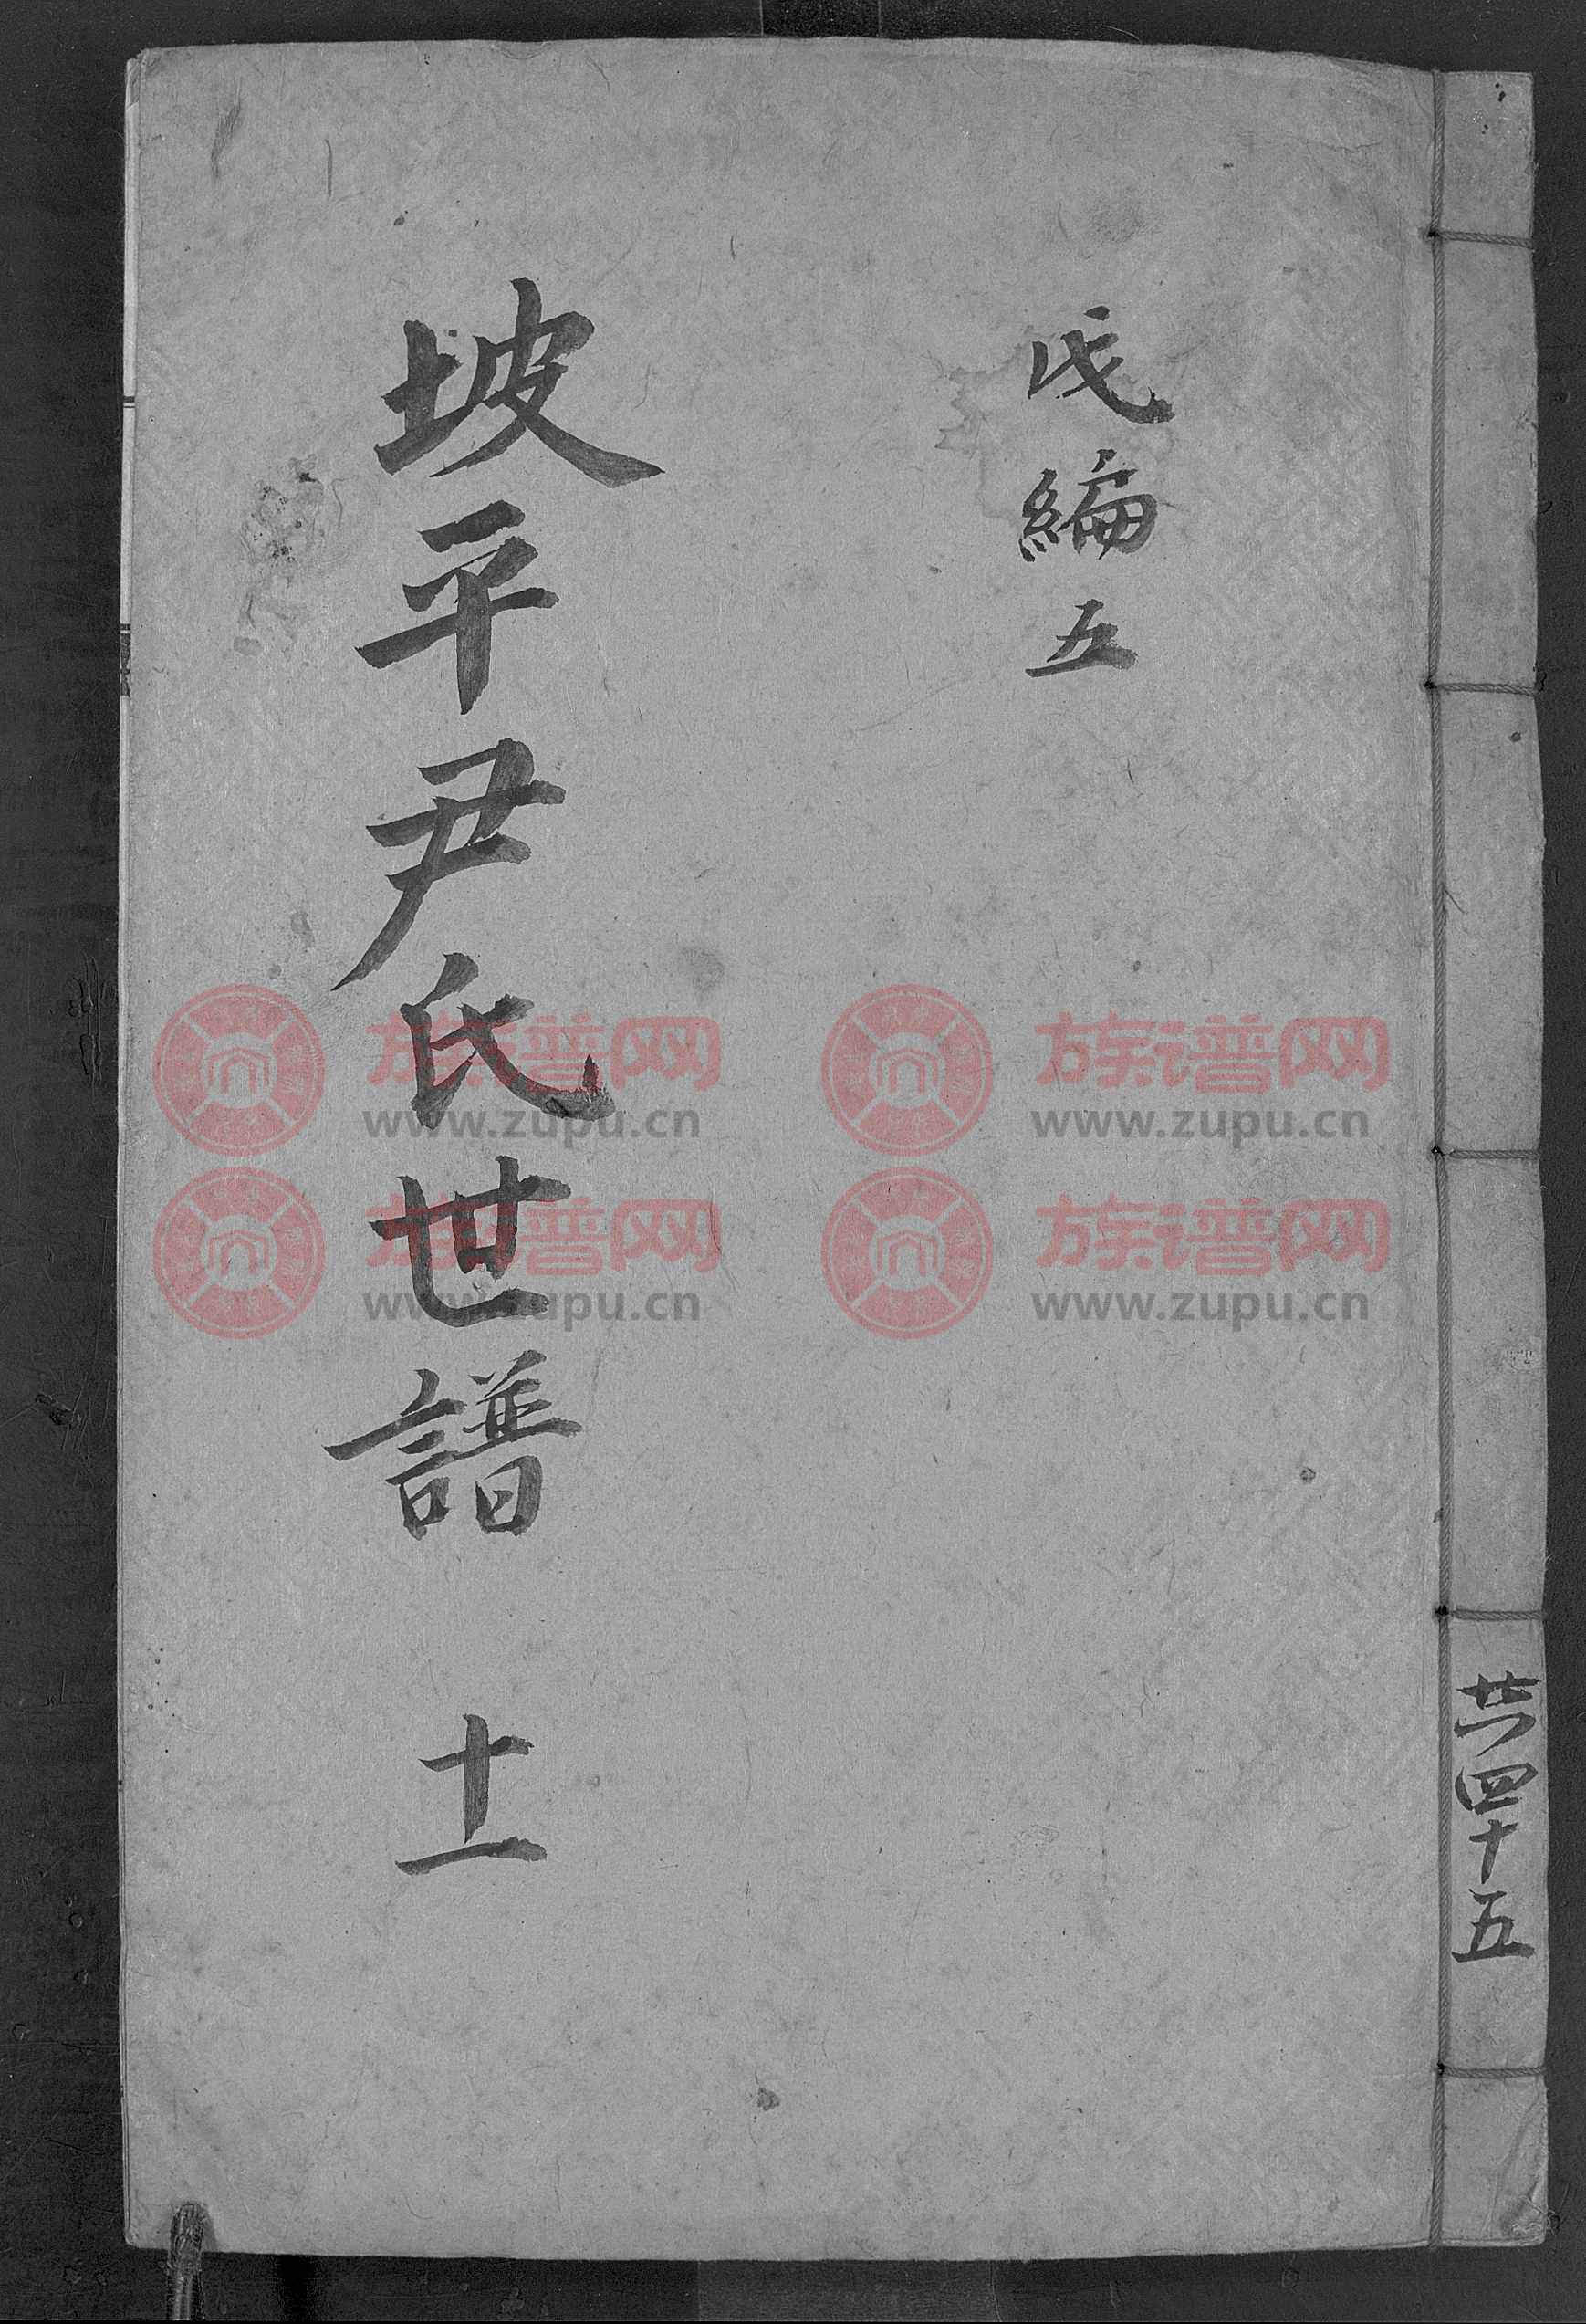 戊編五
坡平尹氏世譜 十一
共四十五
族谱网
www.zupu.cn
族谱网
www.zupu.cn
族谱网
www.zupu.cn
族谱网
www.zupu.cn